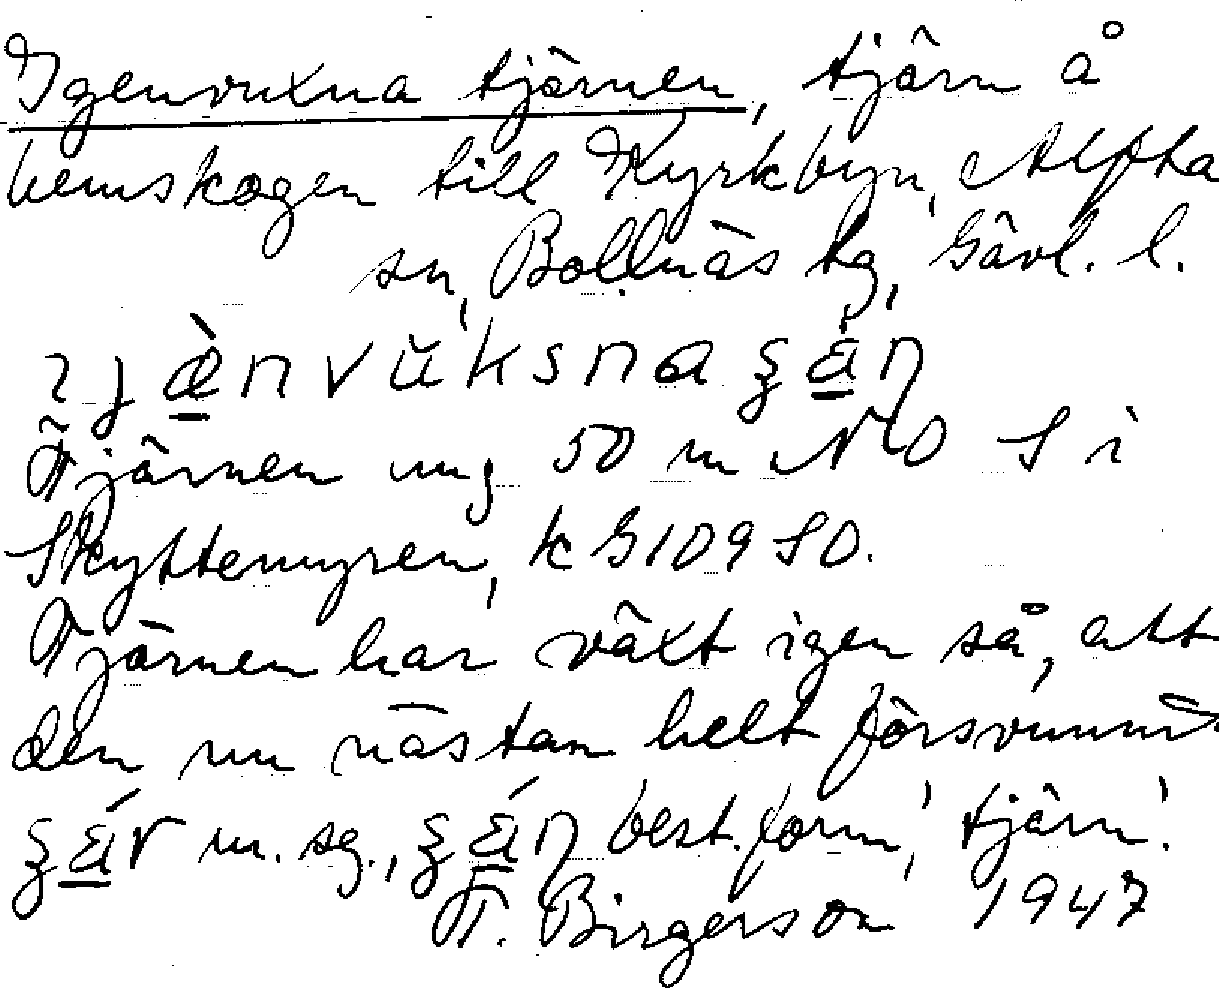 Igenvuxna tjärnen, tjärn å
hemskogen till Kyrkbyn, Alfta
sn, Bollnäs tg, Gävl. l.
Tjärnen ung 50 m NO S i
Skyttemyren, k G109 SO.
Tjärnen har växt igen så, att
den nu nästan helt försvunnit
m. sg., best. form, 'tjärn'.
T. Birgerson 1947